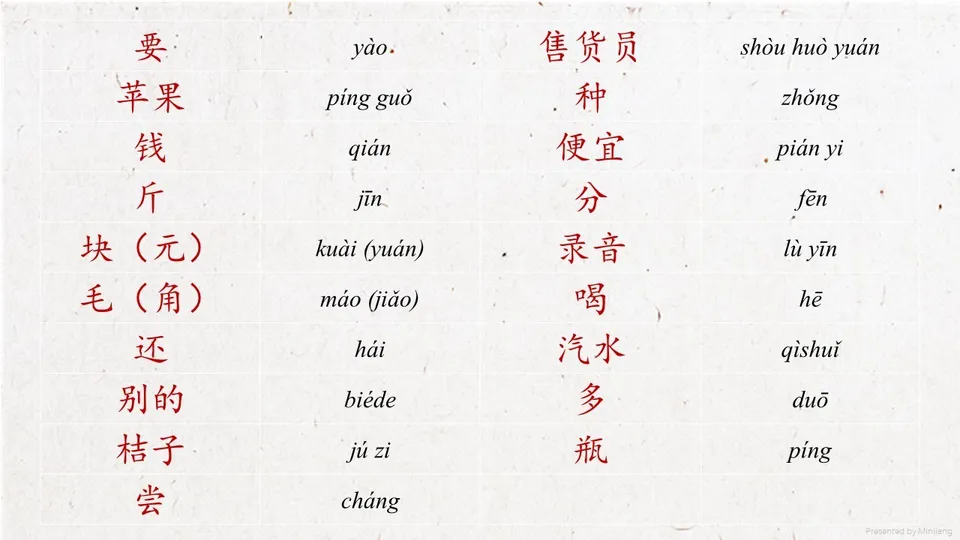 要 yào 售货员 shòu huò yuán
苹果 píng guǒ 种 zhǒng
钱 qián 便宜 pián yi
斤 jīn 分 fēn
块（元） kuài (yuán) 录音 lù yīn
毛（角） máo (jiǎo) 喝 hē
还 hái 汽水 qìshuǐ
别的 biéde 多 duō
桔子 jú zi 瓶 píng
尝 cháng
Presented by Minjiang